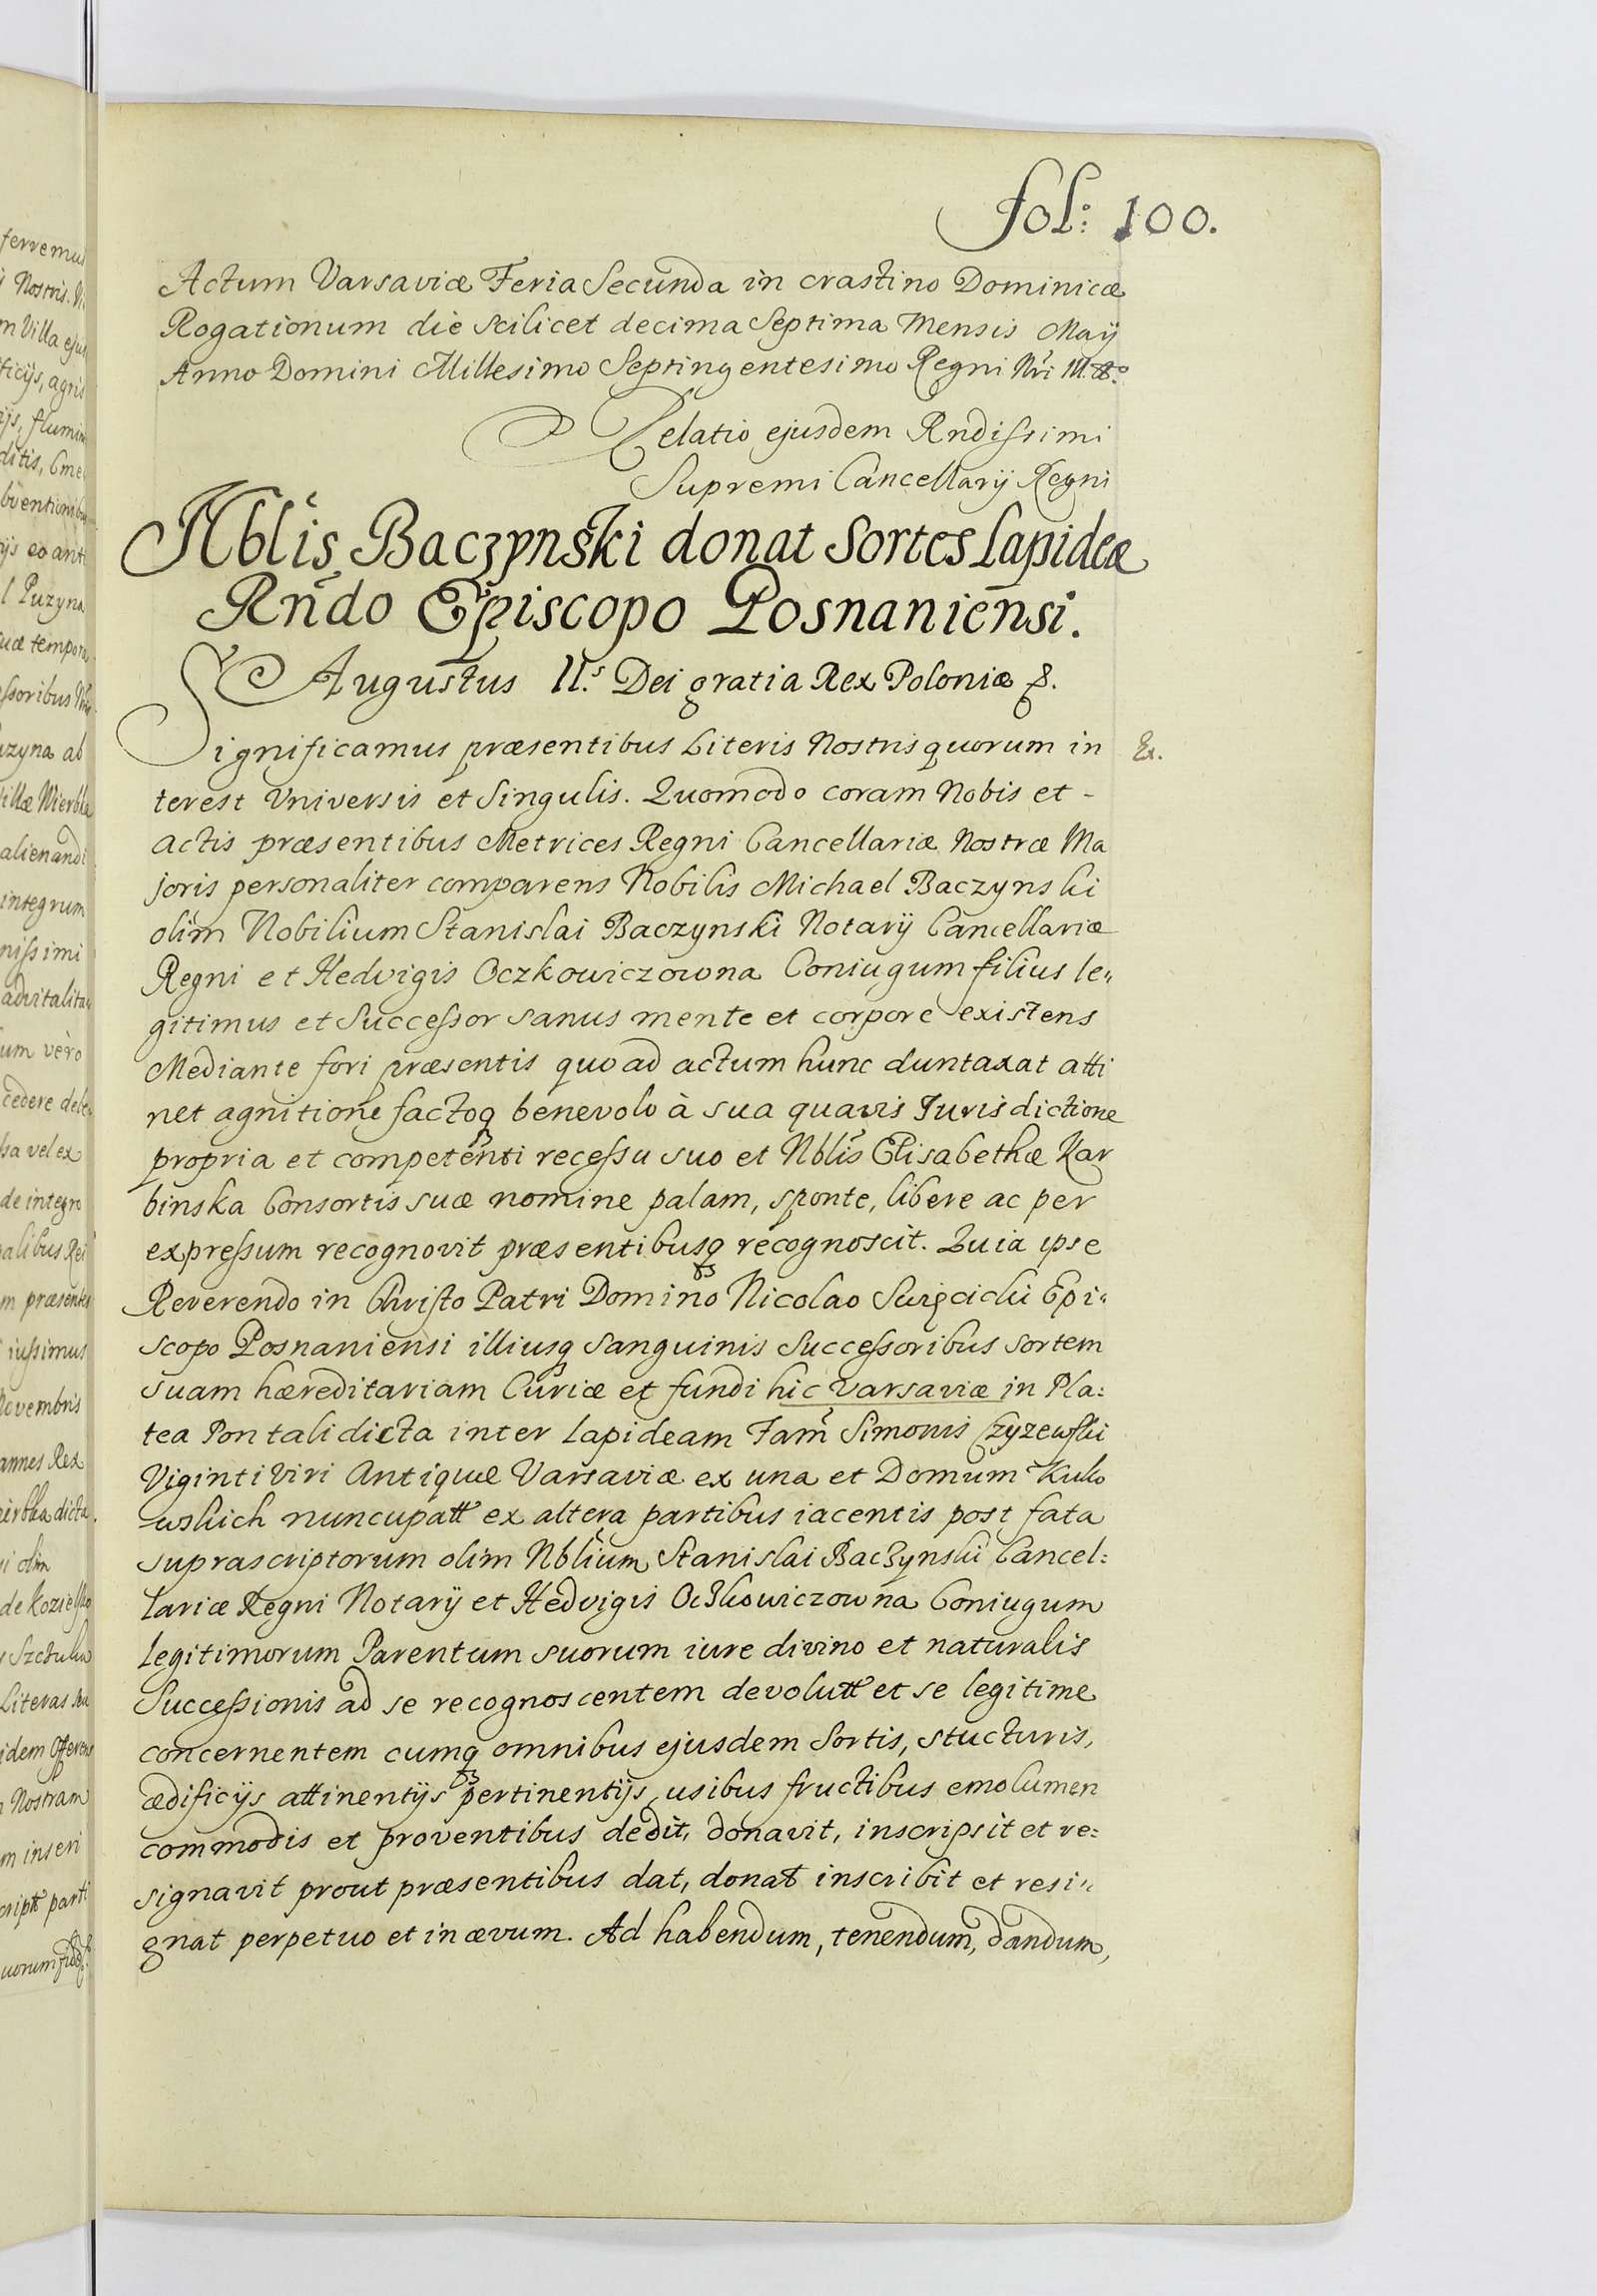 fol: 100.
Actum Varsaviæ Feria Secunda in crastino Dominicæ
Rogationum die scilicet decima Septima Mensis Maÿ
Anno Domini Millesimo Septingentesimo Regni Nri III.
Relatio ejusdem Rndissimi
Supremi Cancellarÿ Regni
Nblis Baczynski donat Sortes Lapideæ
Rndo Episcopo Posnaniensi.
Augustus II.s Dei gratia Rex Poloniæ &.
Significamus præsentibus Literis Nostris quorum in
Ex.
terest Vniversis et Singulis. Quomodo coram Nobis et -
actis præsentibus Metrices Regni Cancellariæ Nostræ Ma
joris personaliter comparens Nobilis Michael Baczynski
olim Nobilium Stanislai Baczynski Notarÿ Cancellariæ
Regni et Hedvigis Oczkowiczowna Coniugum filius le„
gitimus et Successor sanus mente et corpore existens
Mediante fori præsentis quo ad actum hunc duntaxat atti
net agnitione factoq benevolo à sua quavis Jurisdictione
propria et competenti recessu suo et Nblis Elisabethæ Kar
binska Consortis suæ nomine palam, sponte, libere ac per
expressum recognovit præsentibusq recognoscit. Quia ipse
Reverendo in Christo Patri Domino Nicolao Swięcicki Epi„
scopo Posnaniensi illiusq sanguinis Successoribus sortem
suam hæreditariam Curiæ et fundi hic Varsaviæ in Pla:
tea Pontali dicta inter lapideam Fam Simonis Czyzewski
Viginti Viri Antiquæ Varsaviæ ex una et Domum Kulo
wskich nuncupatt ex altera partibus iacentis post fata
suprascriptorum olim Nblium Stanislai Baczynski Cancel:
lariæ Regni Notarÿ et Hedvigis Oczkowiczowna Coniugum
legitimorum Parentum suorum iure divino et naturalis
Successionis ad se recognoscentem devolutt et se legitime
concernentem cumq omnibus ejusdem Sortis, stucturis,
ædificÿs attinentÿs pertinentÿs, usibus fructibus emolumen
commodis et proventibus dedit, donavit, inscripsit et re:
signavit prout præsentibus dat, donat inscribit et resi„
gnat perpetuo et in ævum. Ad habendum, tenendum, dandum,